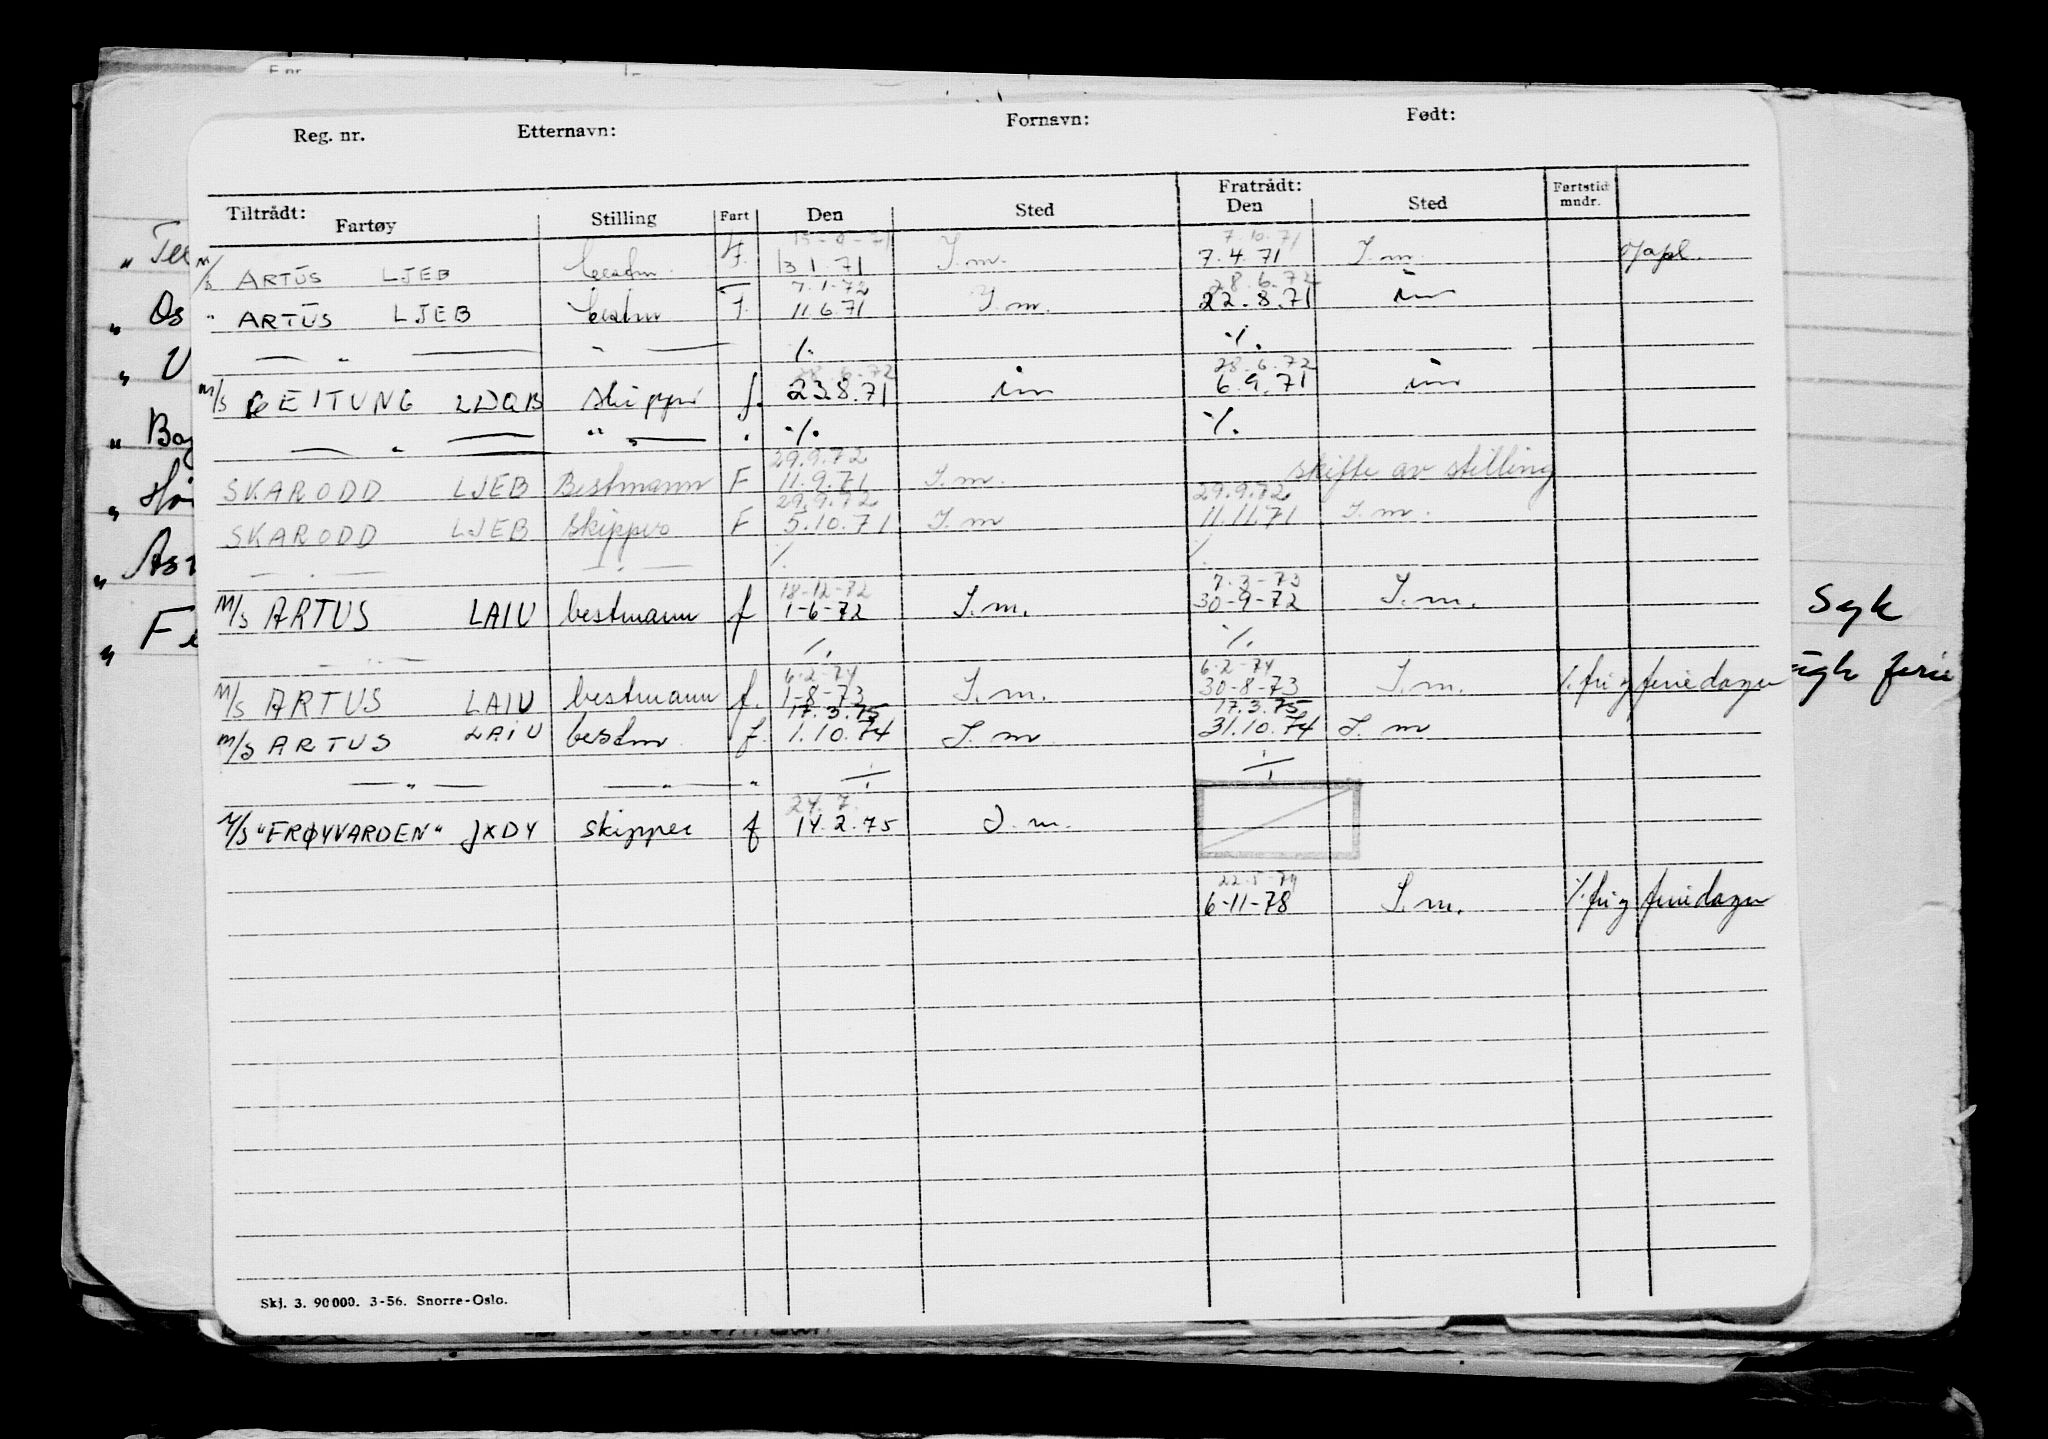 Reg. nr. Etternavn: Fornavn: Født:
Tiltrådt: Fratrådt: Fartstid mndr.
Fartøy Stilling Fart Den Sted Den Sted
7.10.71
M/S ARTUS LJEB F. 13.1.71 I.m. 7.4.71 I.m.
7.1.72 28.6.72
" ARTUS LJEB F. 11.6.71 I.m. 22.8.71 im
— " — " — ./. ./.
28.6.72 28.6.72
M/S GEITUNG LDQB skipper f. 23.8.71 im 6.9.71 im
— " — " — " ./. ./.
29.9.72
SKARODD LJEB Bestmann F 11.9.71 I.m. skifte av stilling
29.9.72 29.9.72
SKARODD LJEB skipper F 5.10.71 I.m 11.11.71 I.m.
— " — — " — ./. ./.
18-12-72 7.3-73
M/S ARTUS LAIU bestmann f 1-6-72 I.m. 30-9-72 I.m.
— " — ./. ./.
6-2-74 6-2-74
M/S ARTUS LAIU bestmann f. 1-8-73 I.m. 30-8-73 I.m. ./. fri og feriedager
17.3.75 17.3.75
M/S ARTUS LAIU bestm f. 1.10.74 I.m 31.10.74 I.m
— " — — " — " ./. ./.
24.7.
M/S "FRØYVARDEN" JXDY skipper f 14.2.75 I.m.
22-5-79
6-11-78 I.m. ./. fri og feriedager
Skj. 3. 90000. 3-56. Snorre-Oslo.
" Os
" U
Syk
ferie